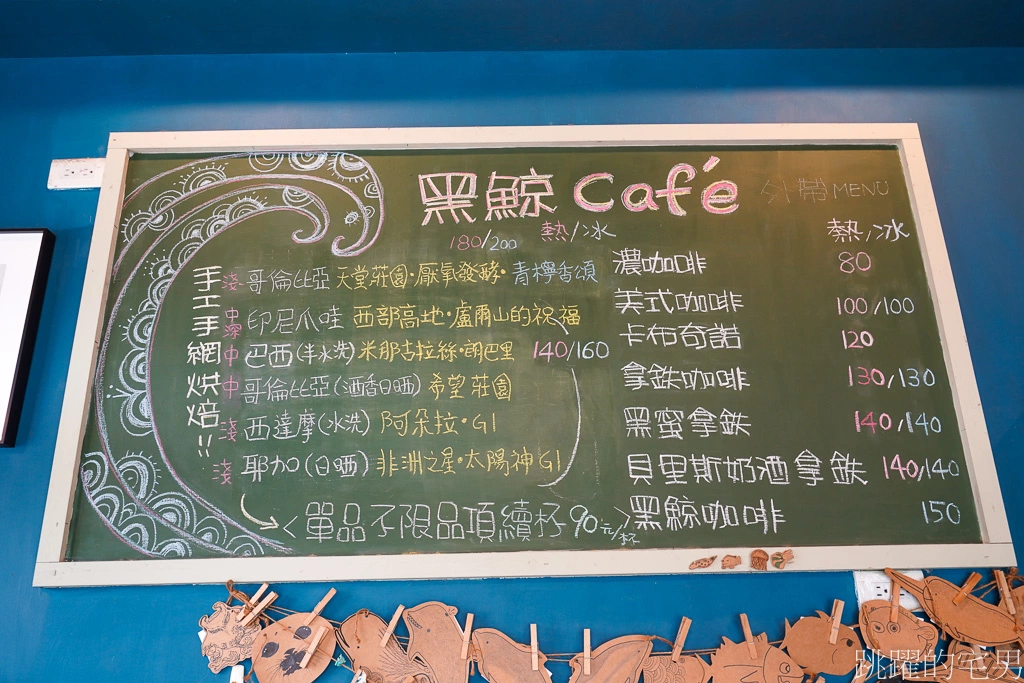 黑鯨 Café
外帶 MENU
180/200 熱/冰
手工手網烘焙!!
淺 哥倫比亞 天堂莊園·厭氧發酵·青檸香頌
中深 印尼爪哇 西部高地·盧爾山的祝福
中 巴西(半水洗) 米那古拉絲·朗巴里 140/160
中 哥倫比亞(酒香日晒) 希望莊園
淺 西達摩(水洗) 阿朵拉·G1
淺 耶加(日晒) 非洲之星·太陽神 G1
<單品不限品項續杯90元/杯>
熱/冰
濃咖啡 80
美式咖啡 100/100
卡布奇諾 120
拿鉄咖啡 130/130
黑蜜拿鉄 140/140
貝里斯奶酒拿鉄 140/140
黑鯨咖啡 150
跳躍的宅男